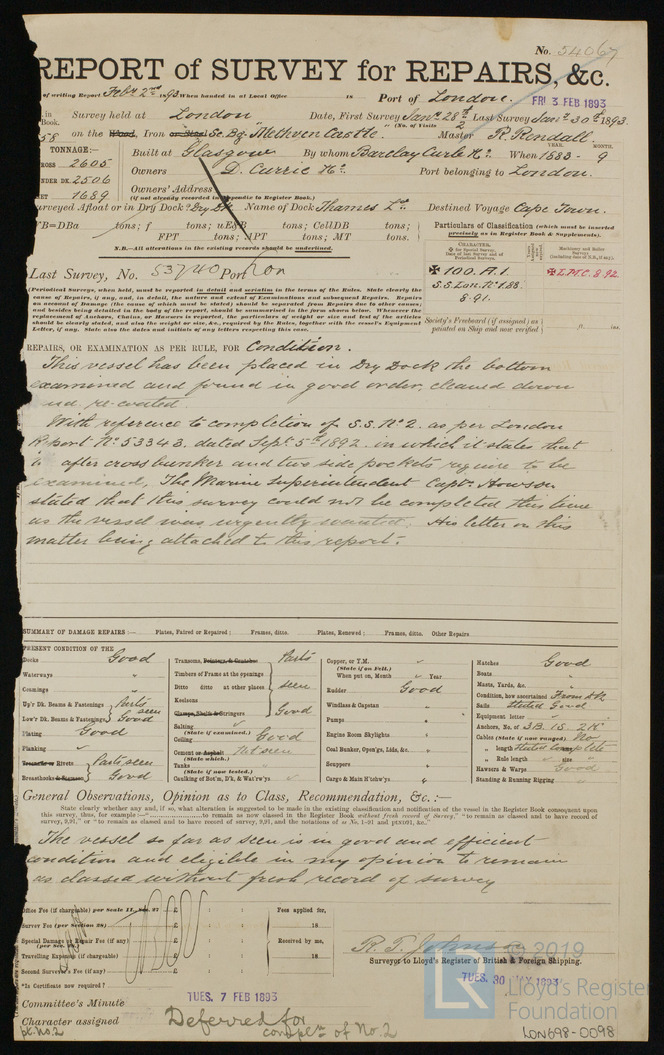 No. 54067
REPORT of SURVEY for REPAIRS, &c.
of writing Report Feb. 2nd 1893 When handed in at Local Office 18 Port of London. FRI 3 FEB 1893
Survey held at London Date, First Survey Jany 28th Last Survey Jany 30th 1893
(No. of Visits 2)
58 on the Wood, Iron or Steel Sc Bg "Methven Castle." Master R. Rendall
TONNAGE:—
GROSS 2605
UNDER DK. 2506
NET 1689
Built at Glasgow By whom Barclay Curle & Co. When 1883 - 9
YEAR. MONTH.
Owners D. Currie & Co. Port belonging to London.
Owners' Address
(if not already recorded in Appendix to Register Book.)
Surveyed Afloat or in Dry Dock? Dry Dk Name of Dock Thames Ld. Destined Voyage Cape Town.
WB=DBa tons; f tons; uE&B tons; CellDB tons;
FPT tons; APT tons; MT tons.
N.B.—All alterations in the existing records should be underlined.
Particulars of Classification (which must be inserted precisely as in Register Book & Supplements).
CHARACTER.
✠ 100.A.1.
S.S.Lon.No1.88
8.91.
✠ L.M.C. 8.92.
Last Survey, No. 53740 Port Lon
(Periodical Surveys, when held, must be reported in detail and seriatim in the terms of the Rules. State clearly the
cause of Repairs, if any, and, in detail, the nature and extent of Examinations and subsequent Repairs. Repairs
on account of Damage (the cause of which must be stated) should be separated from Repairs due to other causes,
and besides being detailed in the body of the report, should be summarised in the form shown below. Whenever the
replacement of Anchors, Chains, or Hawsers is reported, the particulars of weight or size and test of the articles
should be clearly stated, and also the weight or size, &c., required by the Rules, together with the vessel's Equipment
Letter, if any. State also the dates and initials of any letters respecting this case.
Society's Freeboard (if assigned) as
painted on Ship and now verified ft. ins.
REPAIRS, OR EXAMINATION AS PER RULE, FOR Condition.
This vessel has been placed in Dry Dock the bottom
examined and found in good order, cleaned down
and re-coated.
With reference to completion of S.S. No 2. as per London
Report No. 53343. dated Septr. 5th 1892. in which it states that
after cross bunker and two side pockets require to be
examined, The Marine Superintendent Captn. Howson
stated that this survey could not be completed this time
as the vessel was urgently wanted. His letter on this
matter being attached to this report.
SUMMARY OF DAMAGE REPAIRS:— Plates, Faired or Repaired; Frames, ditto. Plates, Renewed; Frames, ditto. Other Repairs
PRESENT CONDITION OF THE
Decks Good
Waterways "
Coamings "
Up'r Dk. Beams & Fastenings Parts seen
Low'r Dk. Beams & Fastenings Good
Plating Good
Planking
Treenails or Rivets Parts seen
Breasthooks & Signson Good
Transoms, Pointers, & Crutches Parts
Timbers of Frame at the openings
Ditto ditto at other places seen
Keelsons
Clamps, Shelfs & Stringers Good
Salting
(State if examined.)
Ceiling Good
Cement or Asphalt Not seen
(State which.)
Tanks
(State if now tested.)
Caulking of Bot'm, D'k, & Wat'rw'ys
Copper, or Y.M.
(State if on Felt.)
When put on, Month Year
Rudder Good
Windlass & Capstan "
Pumps "
Engine Room Skylights "
Coal Bunker, Open'gs, Lids, &c. "
Scuppers "
Cargo & Main H'tchw'ys "
Hatches Good
Boats "
Masts, Yards, &c. "
Condition, how ascertained From dk
Sails Stated Good
Equipment letter
Anchors, No. of 3B. 1S. 2K.
Cables (State if now ranged) No.
" length stated complete
" Rule length size
Hawsers & Warps Good
Standing & Running Rigging "
General Observations, Opinion as to Class, Recommendation, &c.:—
State clearly whether any and, if so, what alteration is suggested to be made in the existing classification and notification of the vessel in the Register Book consequent upon
this survey, thus, for example:—"..............to remain as now classed in the Register Book without fresh record of Survey," "to remain as classed and to have record of
survey, 9,91," or "to remain as classed and to have record of survey, 9,91, and the notations of ss No. 1-91 and ptND91, &c."
The vessel so far as seen is in good and efficient
condition and eligible in my opinion to remain
as classed without fresh record of survey
Office Fee (if chargeable) per Scale II., Sec. 27 £ : :
Survey Fee (per Section 28) £ : :
Special Damage or Repair Fee (if any) £ : :
(per Sec. 28)
Travelling Expenses (if chargeable) £ : :
Second Surveyor's Fee (if any) £ : :
Fees applied for,
18
Received by me,
18
R. T. Johnson
Surveyor to Lloyd's Register of British & Foreign Shipping.
*Is Certificate now required?
Committee's Minute TUES. 7 FEB 1893
TUES. 30 MAY 1893
Character assigned Deferred for
compln of No. 2
pt. No. 2
© 2019
LR
Lloyd's Register
Foundation
LON698-0098